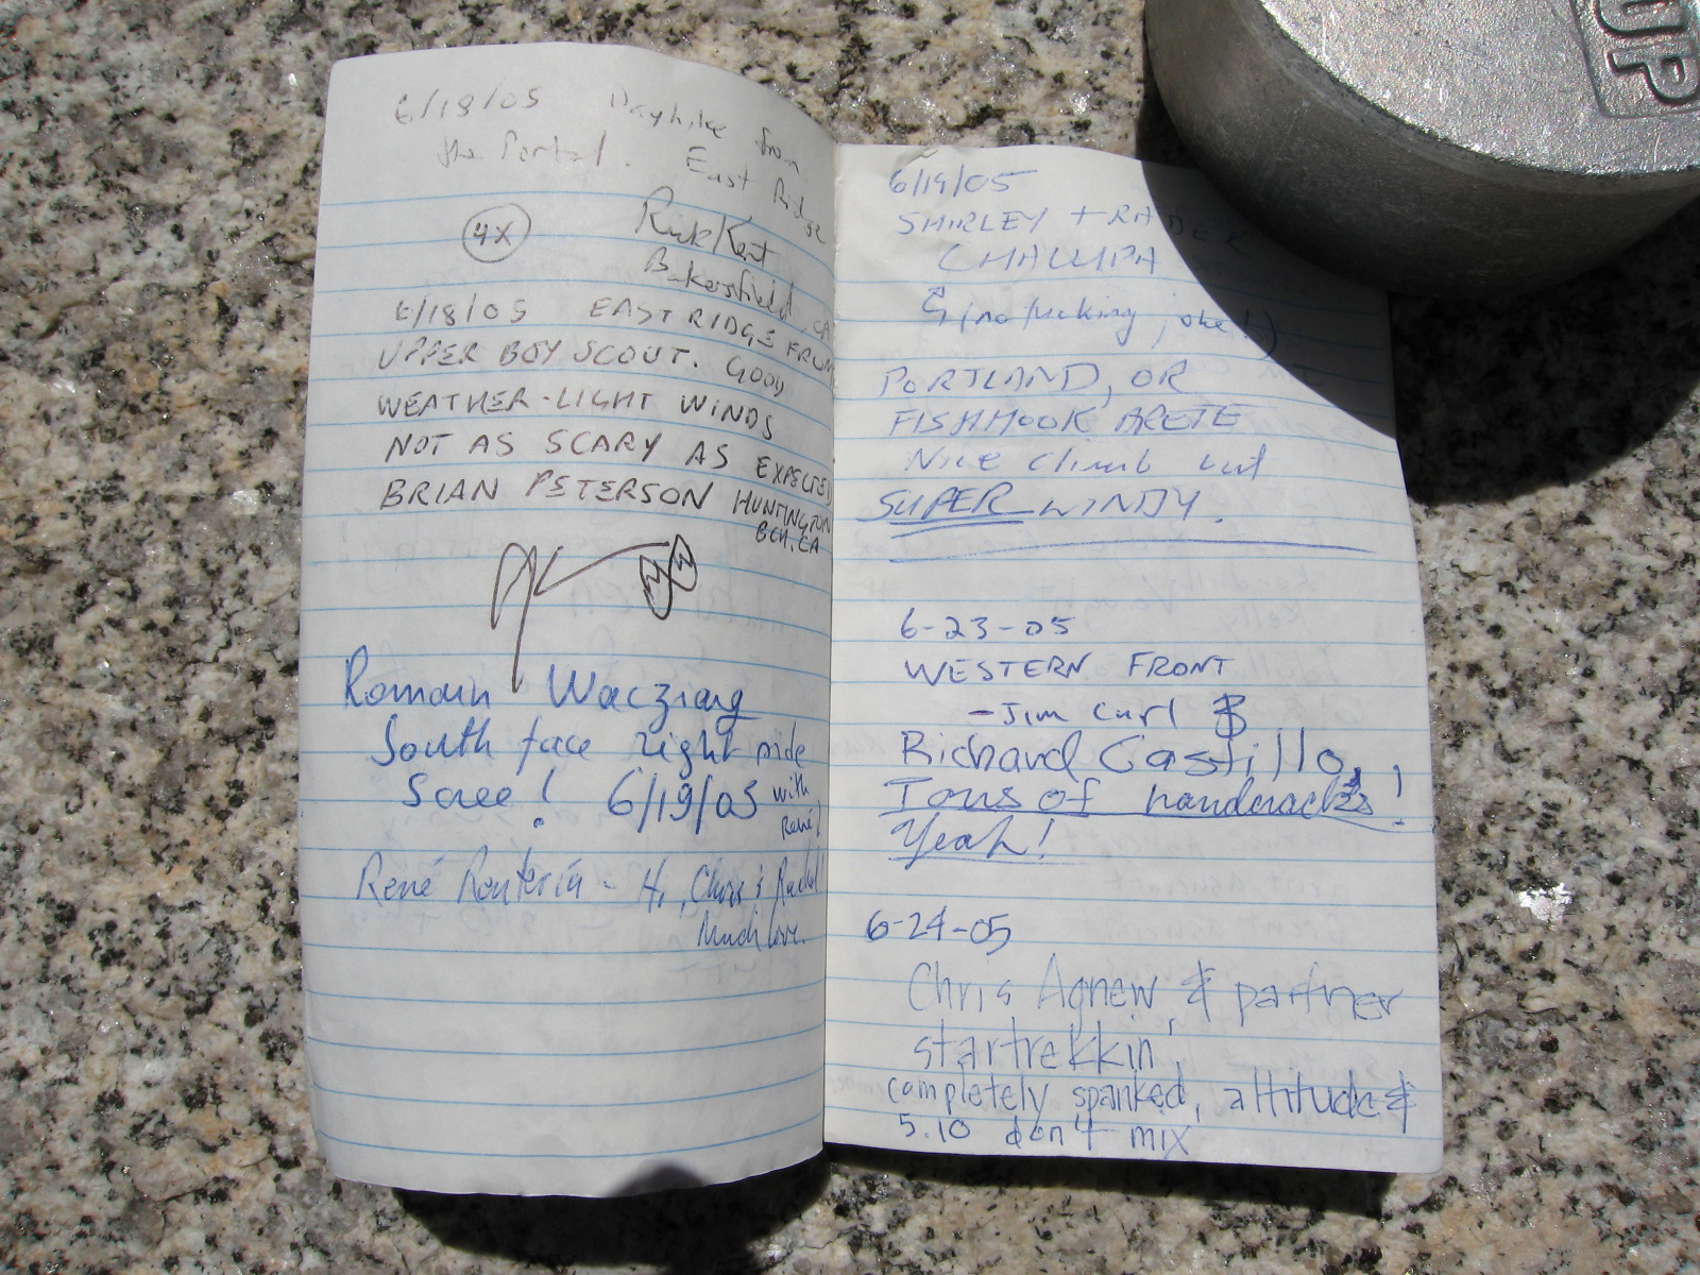 6/18/05 Dayhike from
the Portal. East Ridge
4X
Rick Kent
Bakersfield, CA
6/18/05 EAST RIDGE FROM
UPPER BOY SCOUT. GOOD
WEATHER - LIGHT WINDS
NOT AS SCARY AS EXPECTED
BRIAN PETERSON HUNTINGTON
BCH. CA
Romain Wacziarg
South face right side
Scree! 6/19/05 with
René!
René Rentería - Hi, Chris & Rachel!
Much love.
6/19/05
SHIRLEY + RADEK
CHALUPA
(no fucking joke!)
PORTLAND, OR
FISHHOOK ARETE
Nice climb but
SUPER WINDY.
6-23-05
WESTERN FRONT
- Jim Curl
Richard Castillo
Tons of handcracks!
Yeah!
6-24-05
Chris Agnew, & partner
startrekkin'
completely spanked, altitude &
5.10 don't mix
UP